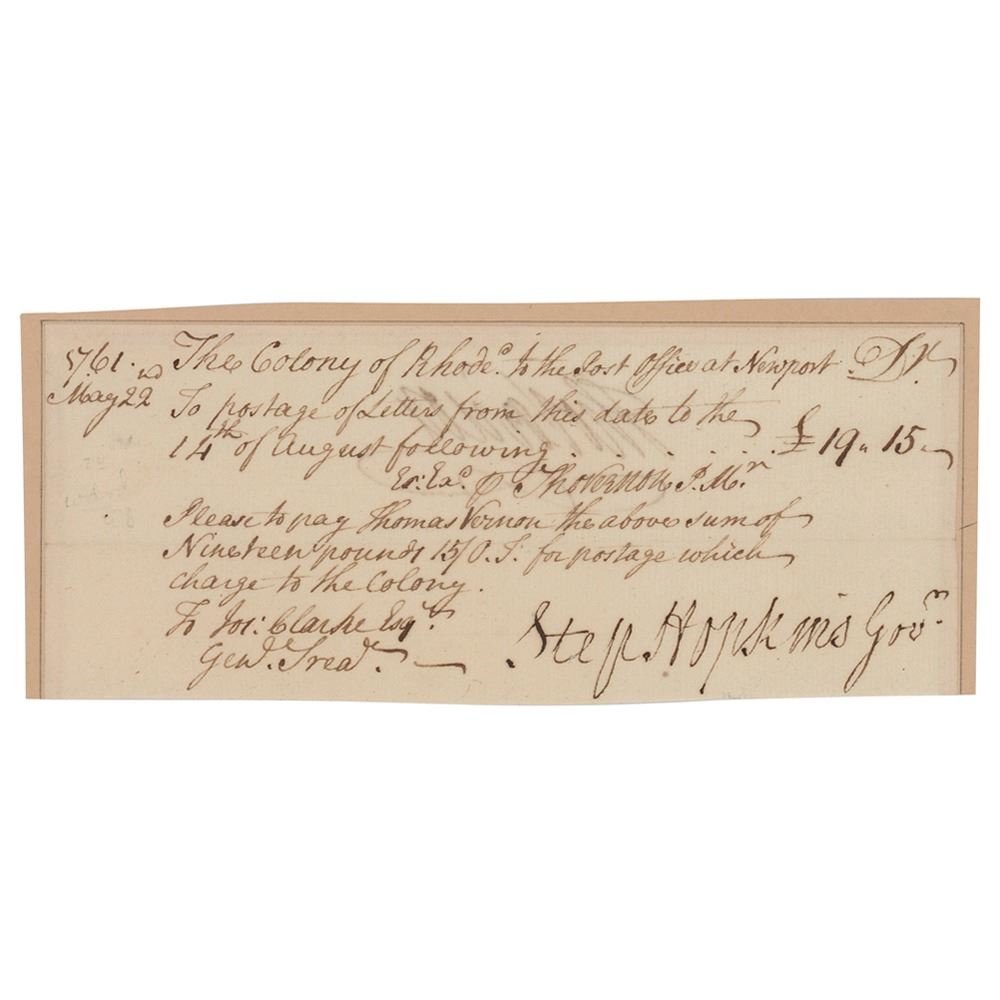 1761. The Colony of Rhode Isd. to the Post Office at Newport Dr.
May 22nd To postage of Letters from this date to the
14th of August following . . . . . £ 19 " 15 "
Er: Exd. ⅌ Tho Vernon P. Mr.
Please to pay Thomas Vernon the above sum of
Nineteen pounds 15/ O. T. for postage which
charge to the Colony.
To Jos: Clarke Esqr.
Genl. Treasr. Step Hopkins Govr.